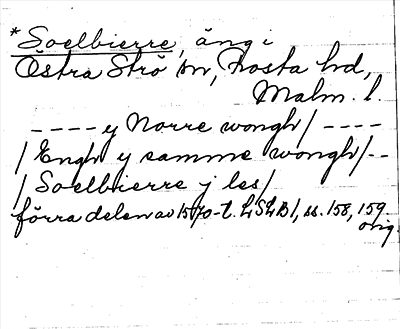 *Soelbierre, äng i
Östra Strö sn, Frosta hd,
Malm. l.
---- y Norre wongh/ ----
/ Engh y samme wongh/--
/ Soelbierre j les/
förra delen av 1570-t. LSLB1, ss. 158, 159.
orig.